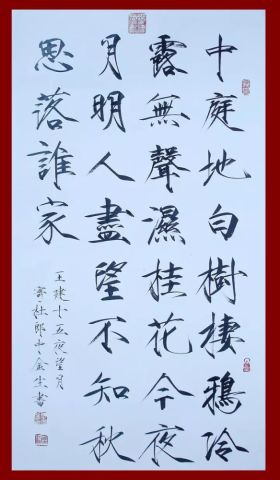 中庭地白樹棲鴉冷
露無聲濕桂花今夜
月明人盡望不知秋
思落誰家
王建十五夜望月
寄杜郎中
書